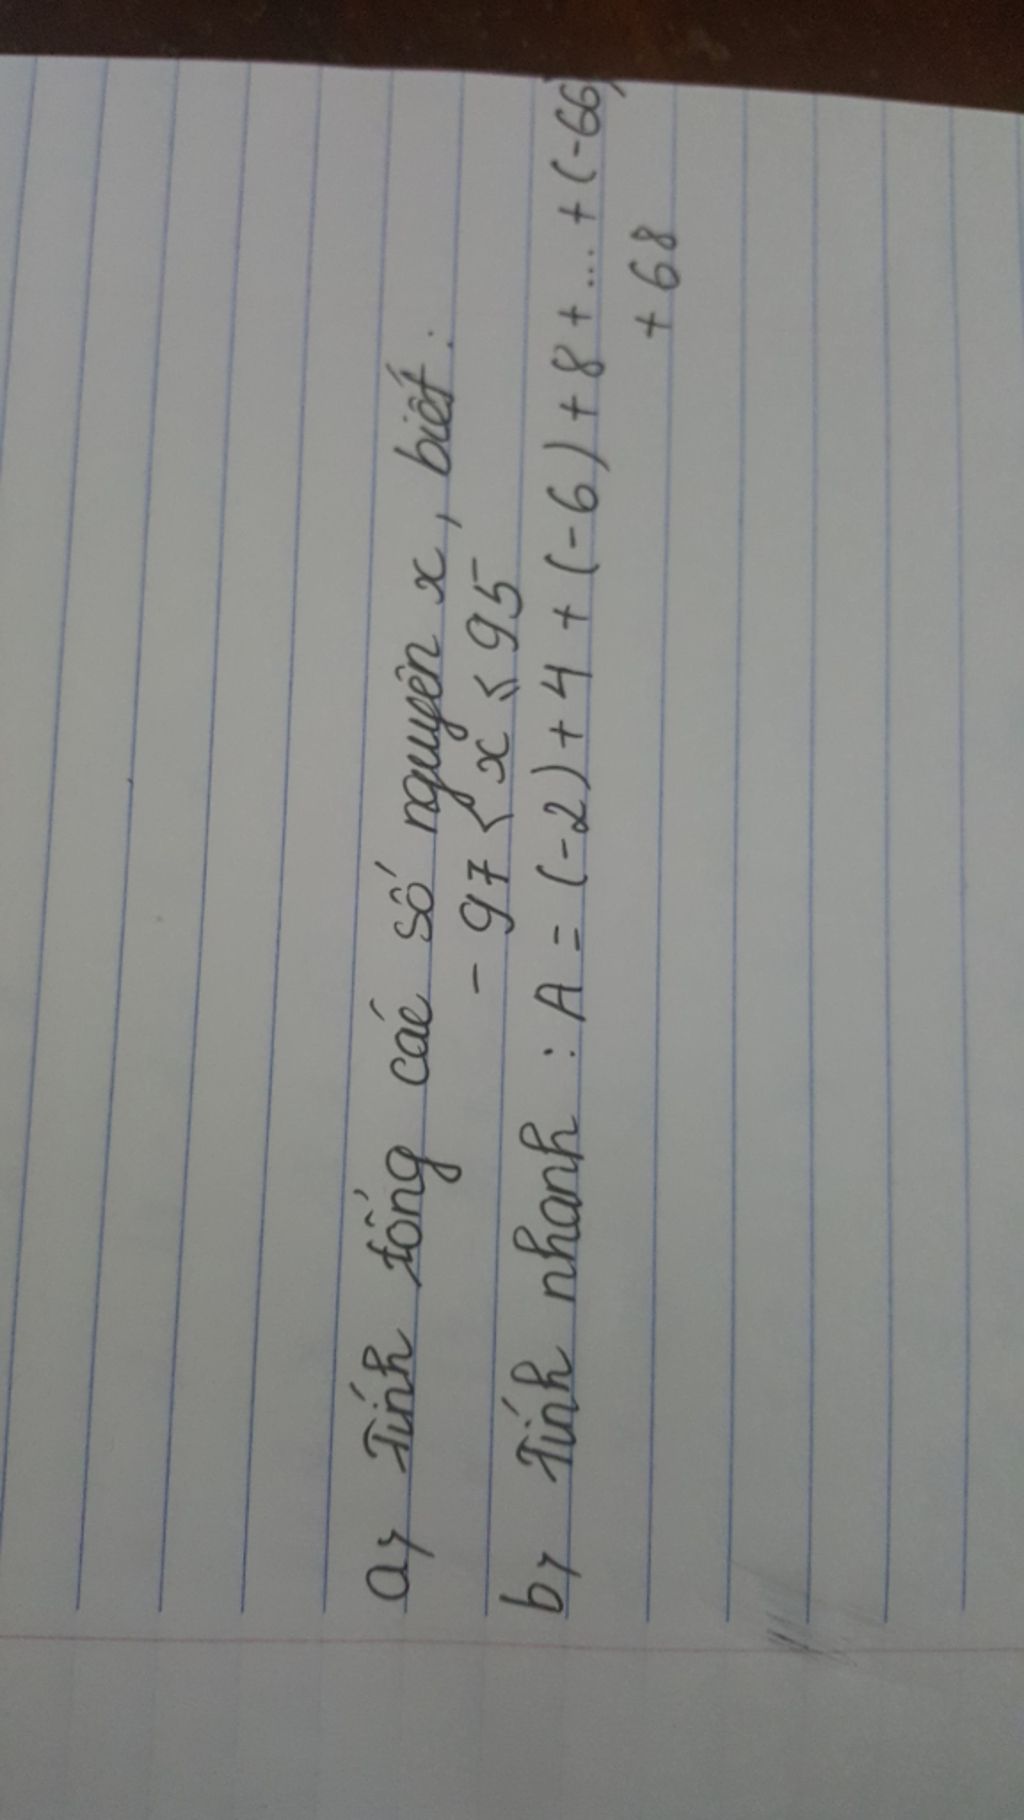 a, Tính tổng các số nguyên x, biết:
- 97 < x ≤ 95
b, Tính nhanh : A = (-2) + 4 + (-6) + 8 + ... + (-66)
+ 68